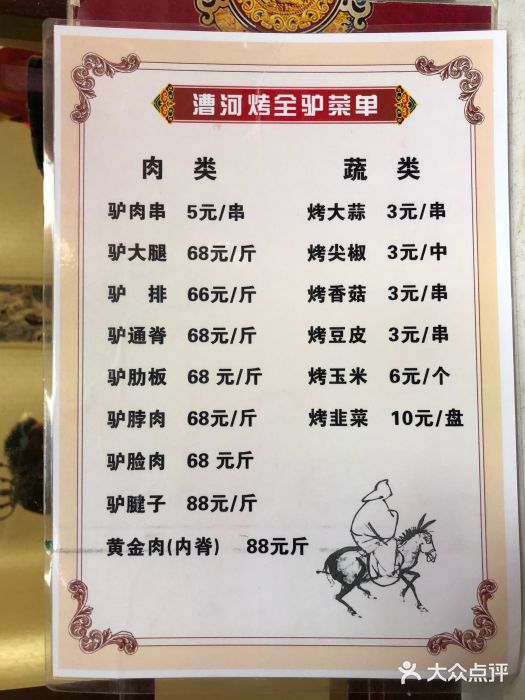 漕河烤全驴菜单
肉 类
驴肉串 5元/串
驴大腿 68元/斤
驴 排 66元/斤
驴通脊 68元/斤
驴肋板 68 元/斤
驴脖肉 68元/斤
驴脸肉 68 元斤
驴腱子 88元/斤
黄金肉(内脊) 88元斤
蔬 类
烤大蒜 3元/串
烤尖椒 3元/中
烤香菇 3元/串
烤豆皮 3元/串
烤玉米 6元/个
烤韭菜 10元/盘
大众点评